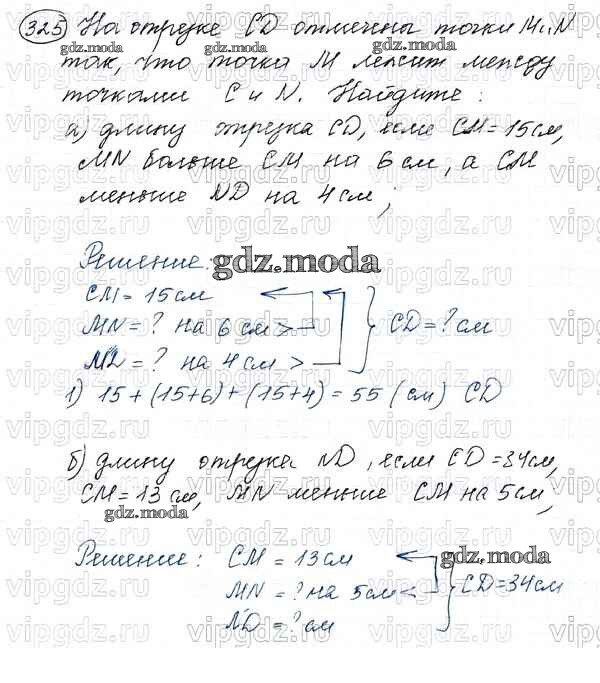 325 На отрезке CD отмечены точки M и N
так, что точка M лежит между
точками C и N. Найдите:
а) длину отрезка CD, если CM = 15 см,
MN больше CM на 6 см, а CM
меньше ND на 4 см;
Решение:
CM = 15 см
MN = ? на 6 см >
ND = ? на 4 см >
} CD = ? см
1) 15 + (15+6) + (15+4) = 55 (см) CD
б) длину отрезка ND, если CD = 34 см,
CM = 13 см, MN меньше CM на 5 см,
Решение: CM = 13 см
MN = ? на 5 см <
ND = ? см
} CD = 34 см
gdz.moda
vipgdz.ru